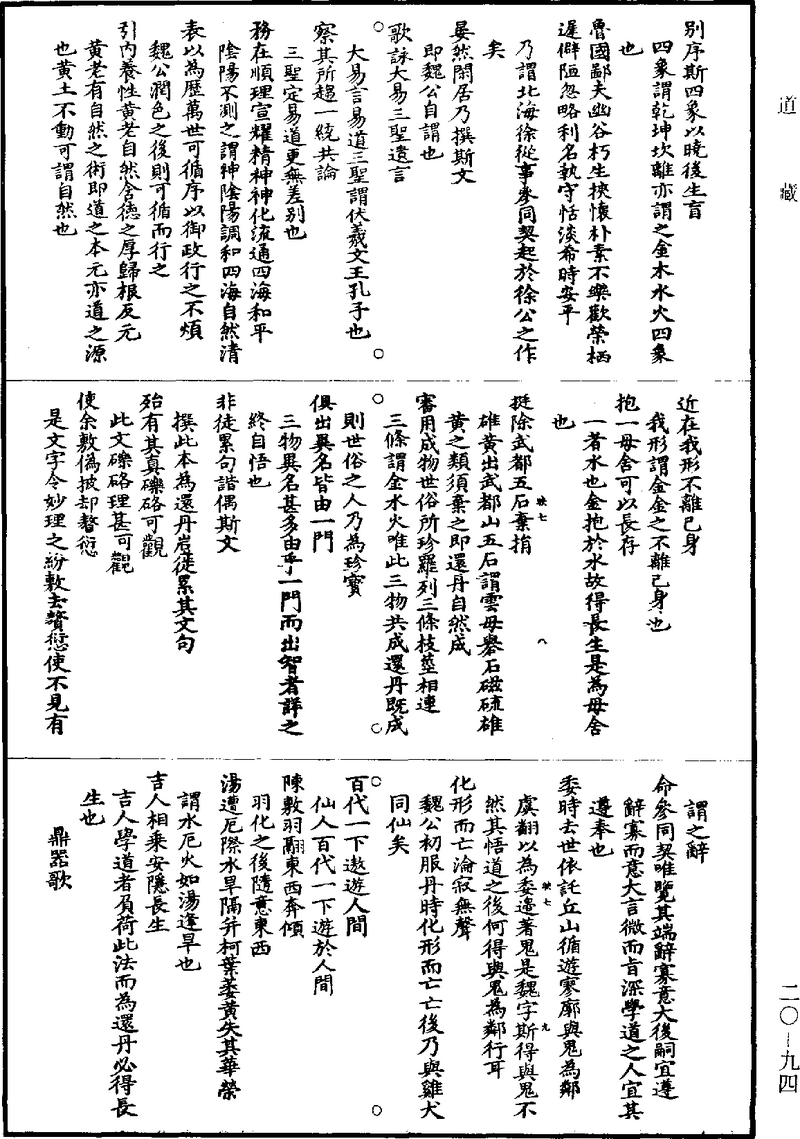 道藏
別序斯四象以曉後生盲
四象謂乾坤坎離亦謂之金木水火四象
也
魯國鄙夫幽谷朽生挾懷朴素不樂歡榮栖
遲僻陋忽略利名執守恬淡希時安平
乃謂北海徐從事參同契起於徐公之作
矣
晏然閑居乃撰斯文
即魏公自謂也
歌詠大易三聖遺言
大易言易道三聖謂伏羲文王孔子也
察其所趨一統共論
三聖定易道更無差別也
務在順理宣耀精神神化流通四海和平
陰陽不測之謂神陰陽調和四海自然清
表以為歷萬世可循序以御政行之不煩
魏公潤色之後則可循而行之
引內養性黃老自然含德之厚歸根反元
黃老有自然之術即道之本元亦道之源
也黃土不動可謂自然也
近在我形不離己身
我形謂金金之不離己身也
抱一毋舍可以長存
一者水也金抱於水故得長生是為毋舍
也
挺除武都五石棄捐
映七
雄黃出武都山五石謂雲母礜石磁硫雄
黃之類須棄之即還丹自然成
審用成物世俗所珍羅列三條枝莖相連
三條謂金水火唯此三物共成還丹既成
則世俗之人乃為珍寶
俱出異名皆由一門
三物異名甚多由乎一門而出智者詳之
終自悟也
非徒累句諧偶斯文
撰此本為還丹豈徒累其文句
殆有其真礫硌可觀
此文礫硌理甚可觀
使余敷偽披却贅愆
是文字令妙理之紛敷去贅愆使不見有
謂之辭
命參同契唯覽其端辭寡意大後嗣宜遵
辭寡而意大言微而旨深學道之人宜其
遵奉也
委時去世依託丘山循遊寥廓與鬼為鄰
映七
虞翻以為委邊著鬼是魏字斯得與鬼不
九
然其悟道之後何得與鬼為鄰行耳
化形而亡淪寂無聲
魏公初服丹時化形而亡亡後乃與雞犬
同仙矣
百代一下遨遊人間
仙人百代一下遊於人間
陳敷羽翮東西奔傾
羽化之後隨意東西
湯遭厄際水旱隔并柯葉萎黃失其華榮
謂水厄火如湯逢旱也
吉人相乘安隱長生
吉人學道者負荷此法而為還丹必得長
生也
鼎器歌
二〇-九四